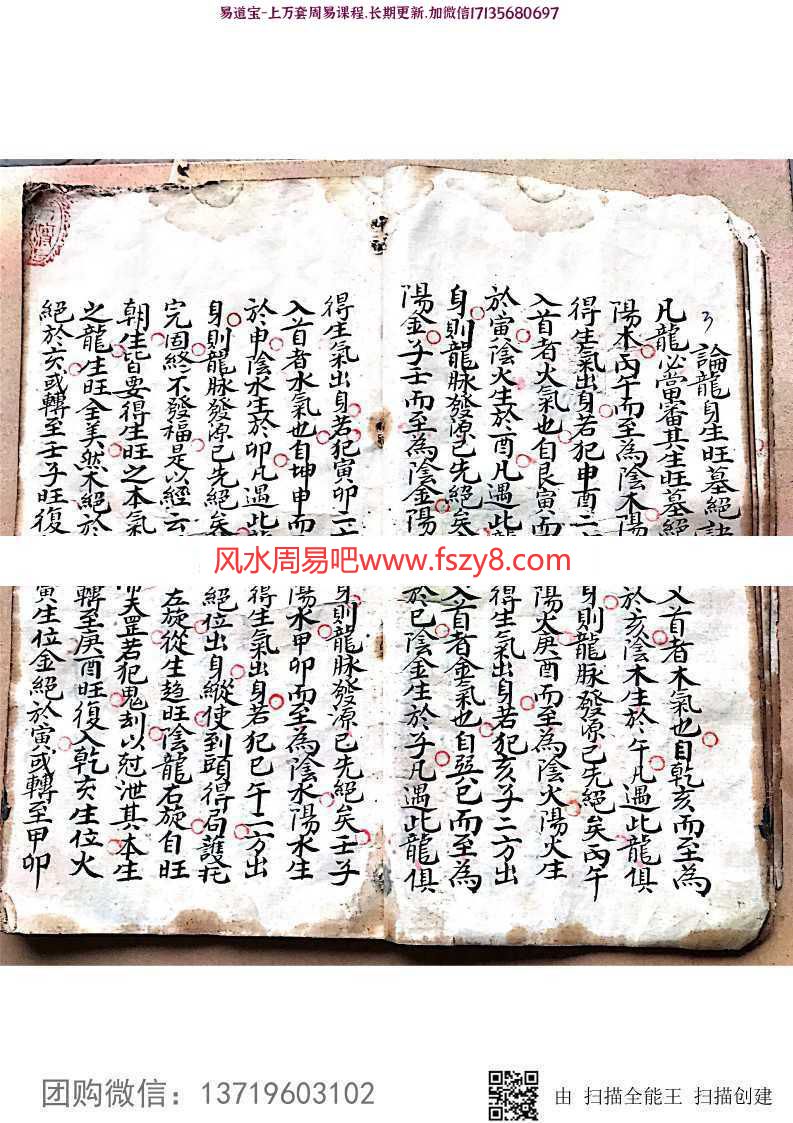 易道宝-上万套周易课程.长期更新.加微信17135680697
3 論龍身生旺墓絕訣
凡龍必當審其生旺墓絕入首者木氣也自乾亥而至為
陽木丙午而至為陰木陽於亥陰木生於午凡遇此龍俱
得生氣出身若犯申酉二身則龍脉發源已先絕矣丙午
入首者火氣也自艮寅而陽火庚酉而至為陰火陽火生
於寅陰火生於酉凡遇此龍得生氣出身若犯亥子二方出
身則龍脉發源已先絕矣入首者金氣也自巽巳而至為
陽金子壬而至為陰金陽於巳陰金生於子凡遇此龍俱
得生氣出身若犯寅卯二身則龍脉發源已先絕矣壬子
入首者水氣也自坤申而陽水甲卯而至為陰水陽水生
於申陰水生於卯凡遇此龍得生氣出身若犯巳午二方出
身則龍脉發源已先絕矣絕位出身縱使到頭得局護托
完固終不發福是以經云左旋從生趋旺陰龍右旋自旺
朝生皆要得生旺之本氣天罡若犯鬼刦以尅泄其本生
之龍生旺全美然木絕於轉至庚酉旺復入乾亥生位火
絕於亥或轉至壬子旺復寅生位金絕於寅或轉至甲卯
风水周易吧www.fszy8.com
团购微信：13719603102
由 扫描全能王 扫描创建